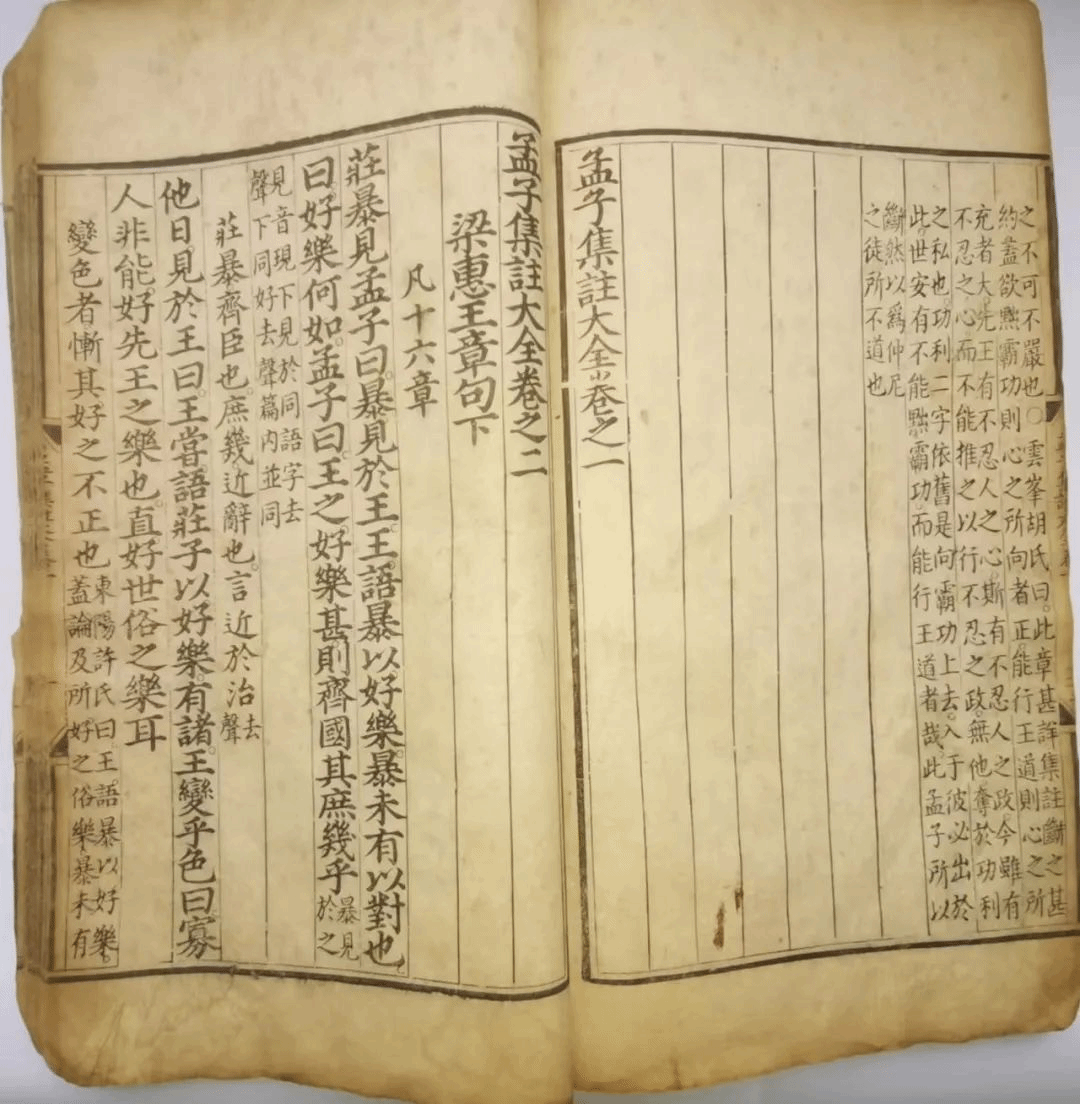 之不可不嚴也○雲峯胡氏曰。此章甚詳集註斷之甚
約蓋欲黜霸功則心之所向者正。能行王道則心之所
充者大。先王有不忍人之心。斯有不忍人之政。今雖有
不忍之心。而不能推之以行不忍之政。無他。奪於功利
之私也。功利二字依舊是向霸功上去。入于彼必出於
此。世安有不能黜霸功。而能行王道者哉。此孟子所以
斷然以爲仲尼
之徒所不道也
孟子集註大全卷之一
孟子集註大全卷之二
梁惠王章句下
凡十六章
莊暴見孟子曰。暴見於王。王語暴以好樂。暴未有以對也
曰。好樂何如。孟子曰。王之好樂甚則齊國其庶幾乎暴見於之
見音現下見於同語字去
聲下同好去聲篇内並同
莊暴齊臣也庶幾近辭也。言近於治去聲
他日。見於王曰。王嘗語莊子以好樂。有諸。王變乎色曰。寡
人非能好先王之樂也。直好世俗之樂耳
變色者慚其好之不正也東陽許氏曰。王語暴以好樂。
蓋論及所好之俗樂暴未有